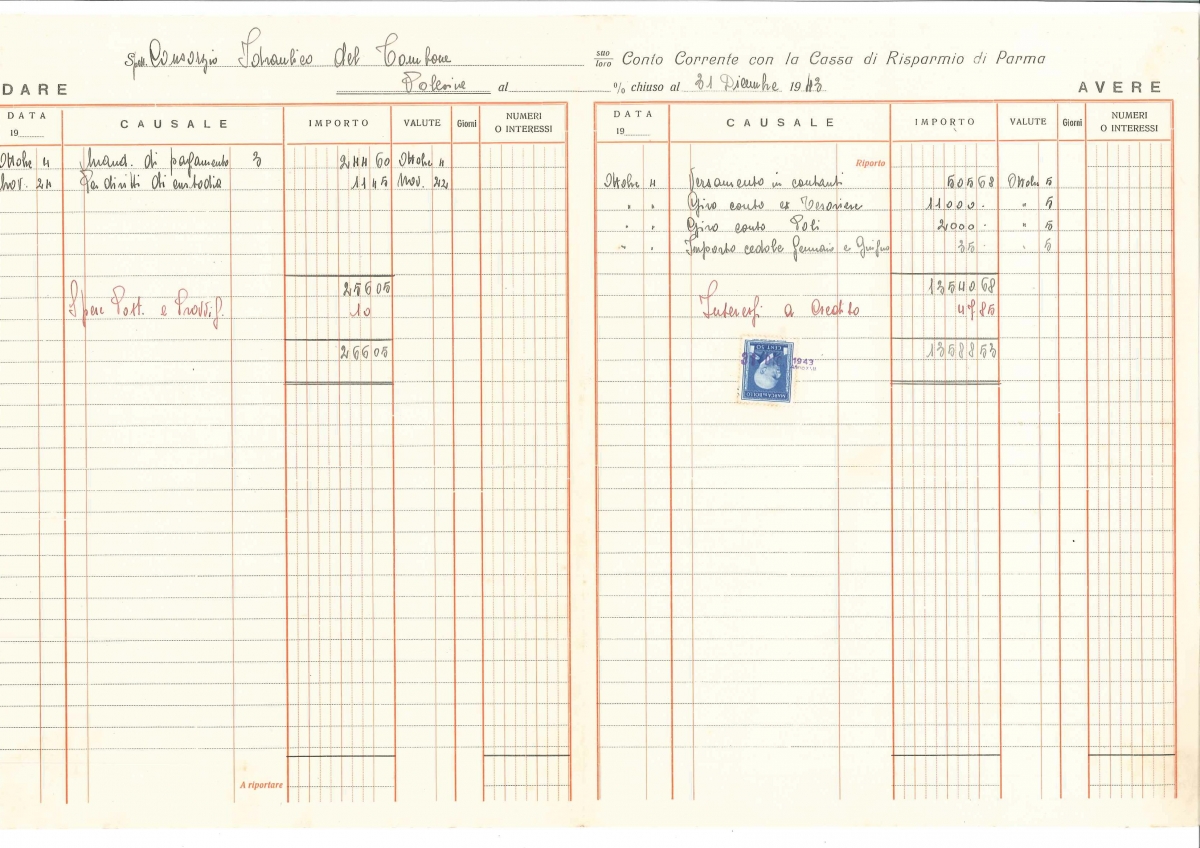 Spett. Consorzio Idraulico del Cantone suo/loro Conto Corrente con la Cassa di Risparmio di Parma
DARE al % chiuso al 31 Dicembre 1943 AVERE
DATA 19 CAUSALE IMPORTO VALUTE Giorni NUMERI O INTERESSI DATA 19 CAUSALE IMPORTO VALUTE Giorni NUMERI O INTERESSI
Ottobre 4 Mand. di pagamento 3 244 60 Ottobre 4
Nov. 24 Per diritti di custodia 11 45 Nov. 22
25605
Spese Post. e Provvig. 10
26605
A riportare
Riporto
Ottobre 4 Versamento in contanti 50568 Ottobre 5
" " Giro conto ex Tesoriere 11000. " 5
" " Giro conto Poli 2000. " 5
" " Importo cedole Gennaio e Giugno 35. " 5
1354068
Interessi a Credito 4785
1358853
MARCA DA BOLLO
CENT. 50
1943